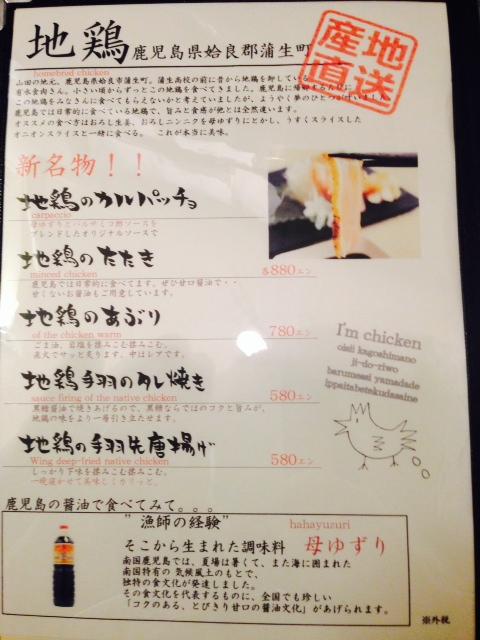 地鶏 鹿児島県姶良郡蒲生町
産地直送
homebred chicken
山田の地元、鹿児島県姶良市蒲生町。蒲生高校の前に昔から地鶏を卸している
有水食肉さん。小さい頃からずっとこの地鶏を食べてきました。鹿児島に帰郷するたびに
この地鶏をみなさんに食べてもらえないかと考えていましたが、ようやく夢のひとつが叶いました。
鹿児島では日常的に食べている地鶏で、旨みと食感が他とは全然違います。
オススメの食べ方はおろし生姜、おろしニンニクを母ゆずりにとかし、うすくスライスした
オニオンスライスと一緒に食べる。 これが本当に美味。
新名物！！
地鶏のカルパッチョ
carpaccio
母ゆずりとバルサミコ酢ソースを
ブレンドしたオリジナルソースで
地鶏のたたき
minced chicken
各880エン
鹿児島では日常的に食べてます。ぜひ甘口醤油で・・
甘くないお醤油もご用意しています。
地鶏のあぶり
780エン
of the chicken warm
ごま油、岩塩を揉みこむ揉みこむ。
直火でサッと炙ります。中はレアです。
地鶏手羽のタレ焼き
580エン
sause firing of the native chicken
黒糖醤油で焼きあげるので、黒糖ならではのコクと旨みが、
地鶏の味をより一層引き立たせます。
地鶏の手羽先唐揚げ
580エン
Wing deep-fried native chicken
しっかり下味を揉みこむ揉みこむ。
一晩寝かせて美味しくカリッと。
I'm chicken
oisii kagoshimano
ji-do-riwo
harumassi yamadade
ippaitabetekudasaine
鹿児島の醤油で食べてみて。。。
"漁師の経験"
hahayuzuri
そこから生まれた調味料 母ゆずり
南国鹿児島では、夏場は暑くて、また海に囲まれた
南国特有の 気候風土のもとで、
独特の食文化が発達しました。
その食文化を代表するものに、全国でも珍しい
「コクのある、とびきり甘口の醤油文化」があげられます。
※外税